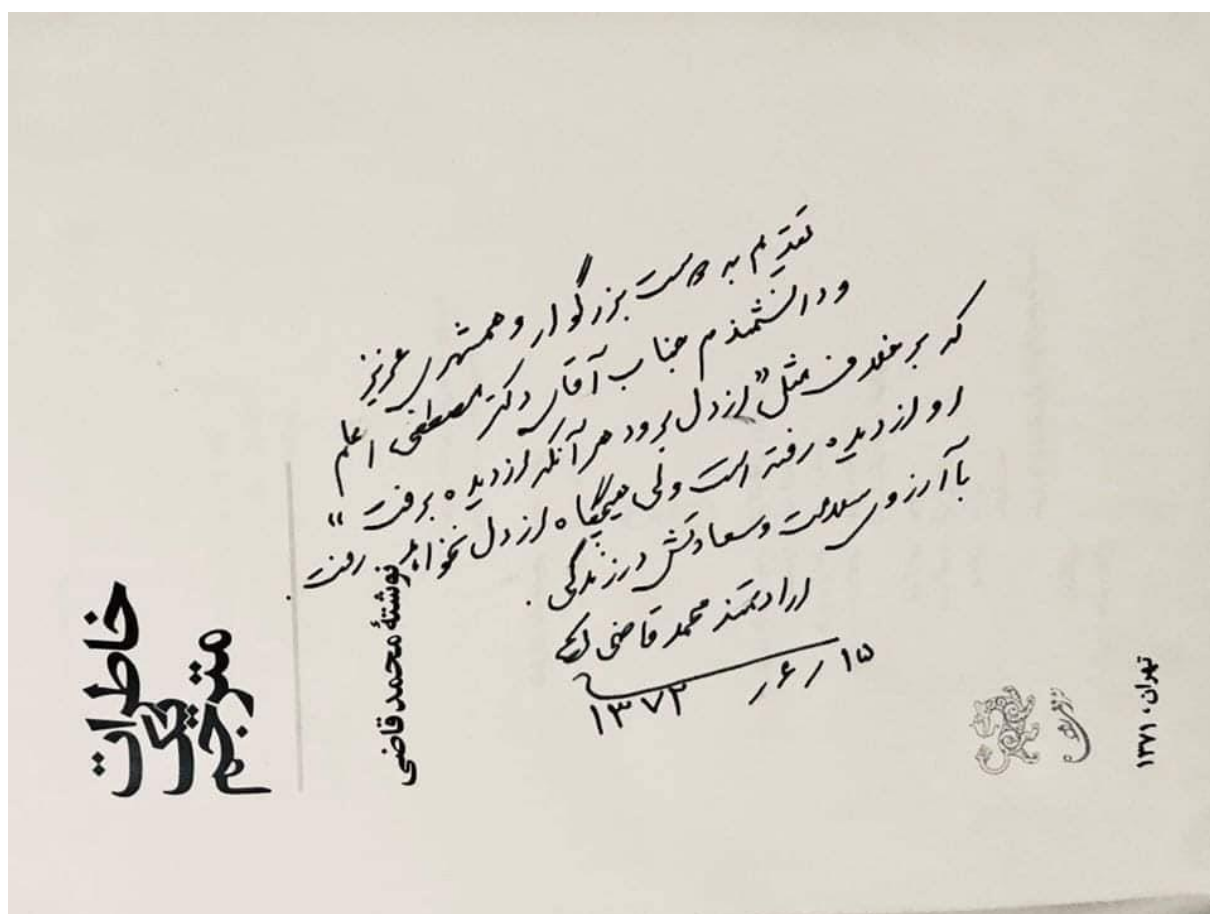 خاطرات
یک
مترجم
نوشتهٔ محمد قاضی
تهران، ۱۳۷۱
تقدیم به دوست بزرگوار و همشهری عزیز
و دانشمندم جناب آقای دکتر مصطفی اعلم
که برخلاف مثل «از دل برود هر آنکه از دیده برفت»
او از دیده رفته است ولی هیچگاه از دل نخواهد رفت.
با آرزوی سلامت و سعادتش در زندگی.
ارادتمند محمد قاضی
۱۵ ر ۶ ر ۱۳۷۳